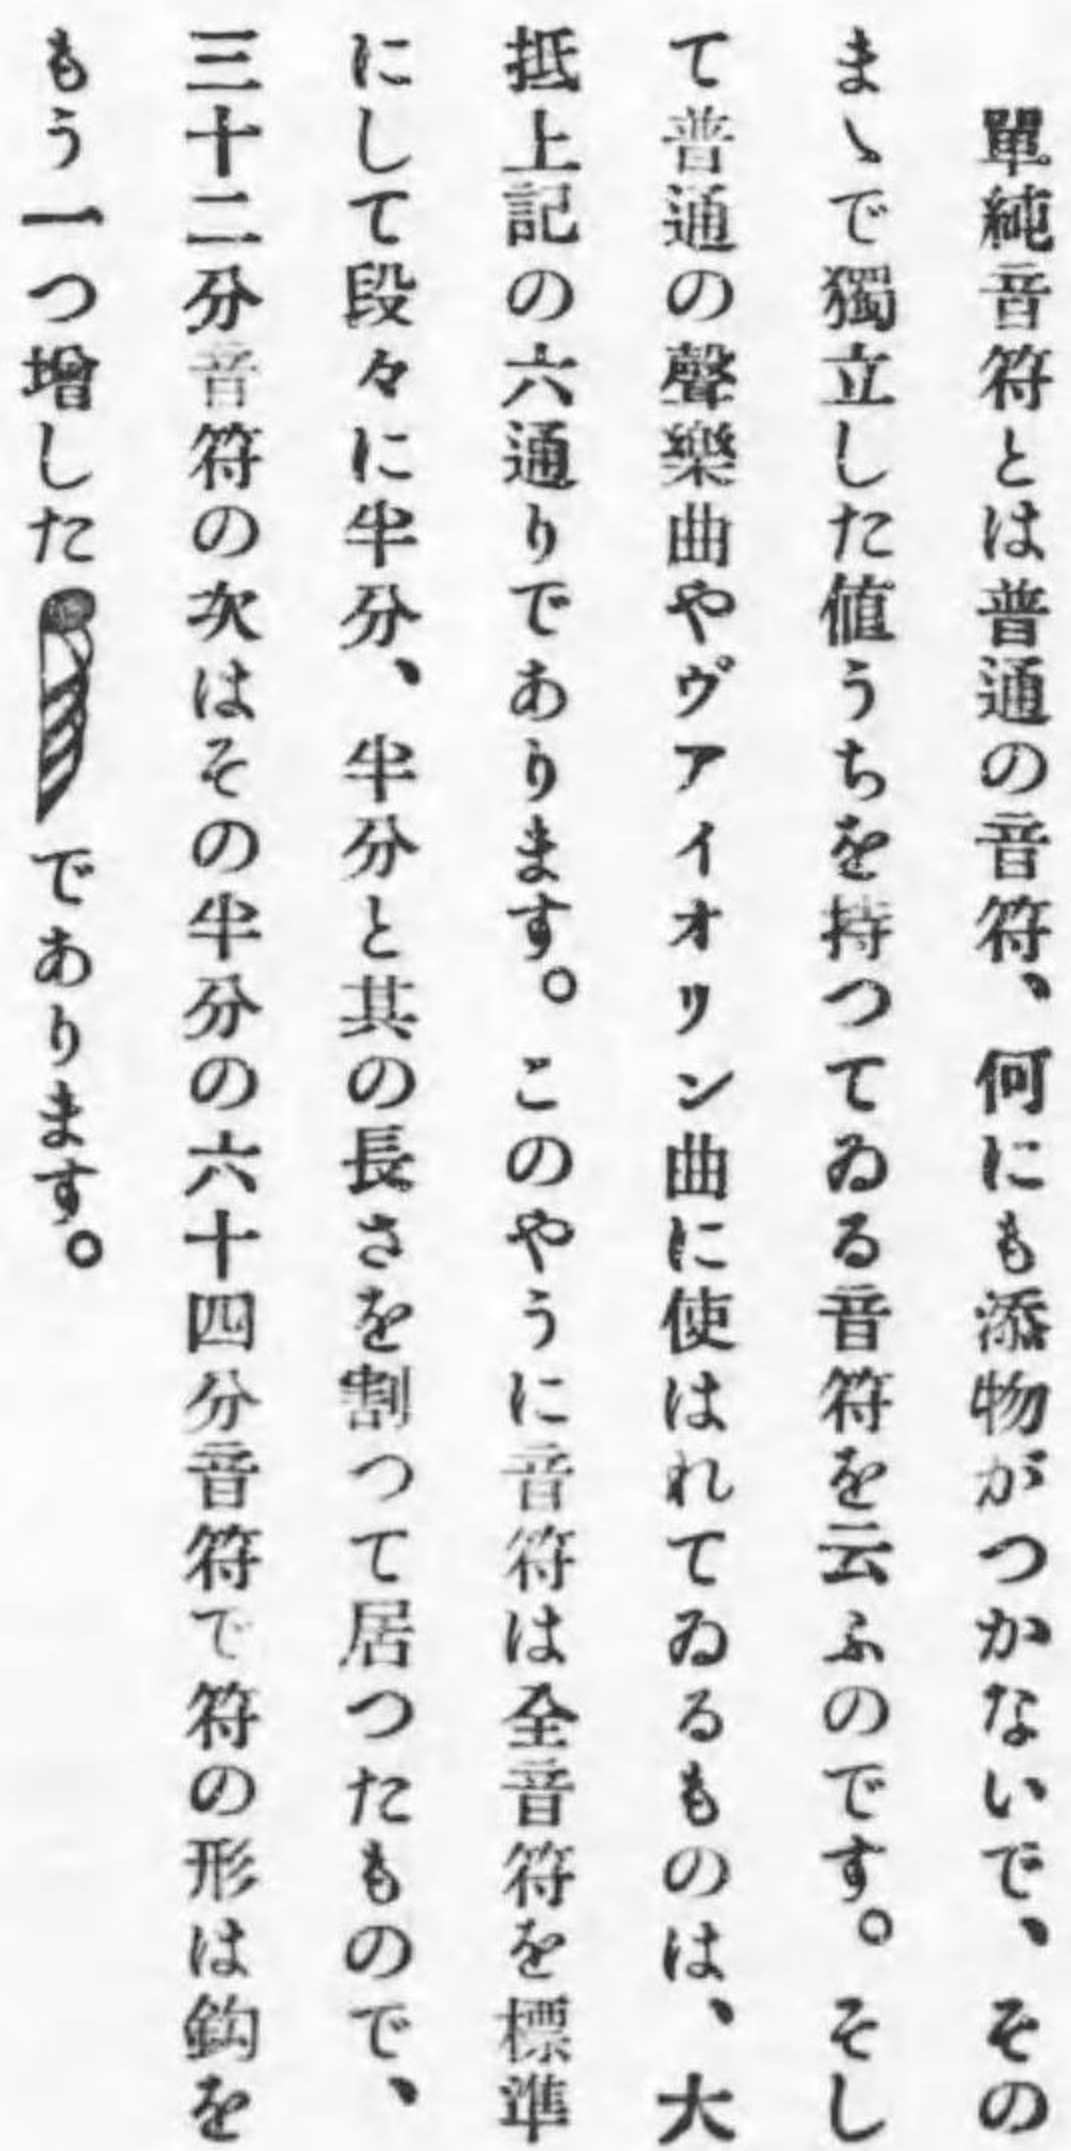 單純音符とは普通の音符、何にも添物がつかないで、その
まゝで獨立した値うちを持つてゐる音符を云ふのです。そし
て普通の聲樂曲やヴアイオリン曲に使はれてゐるものは、大
抵上記の六通りであります。このやうに音符は全音符を標準
にして段々に半分、半分と其の長さを割つて居つたもので、
三十二分音符の次はその半分の六十四分音符で符の形は鈎を
もう一つ增したであります。